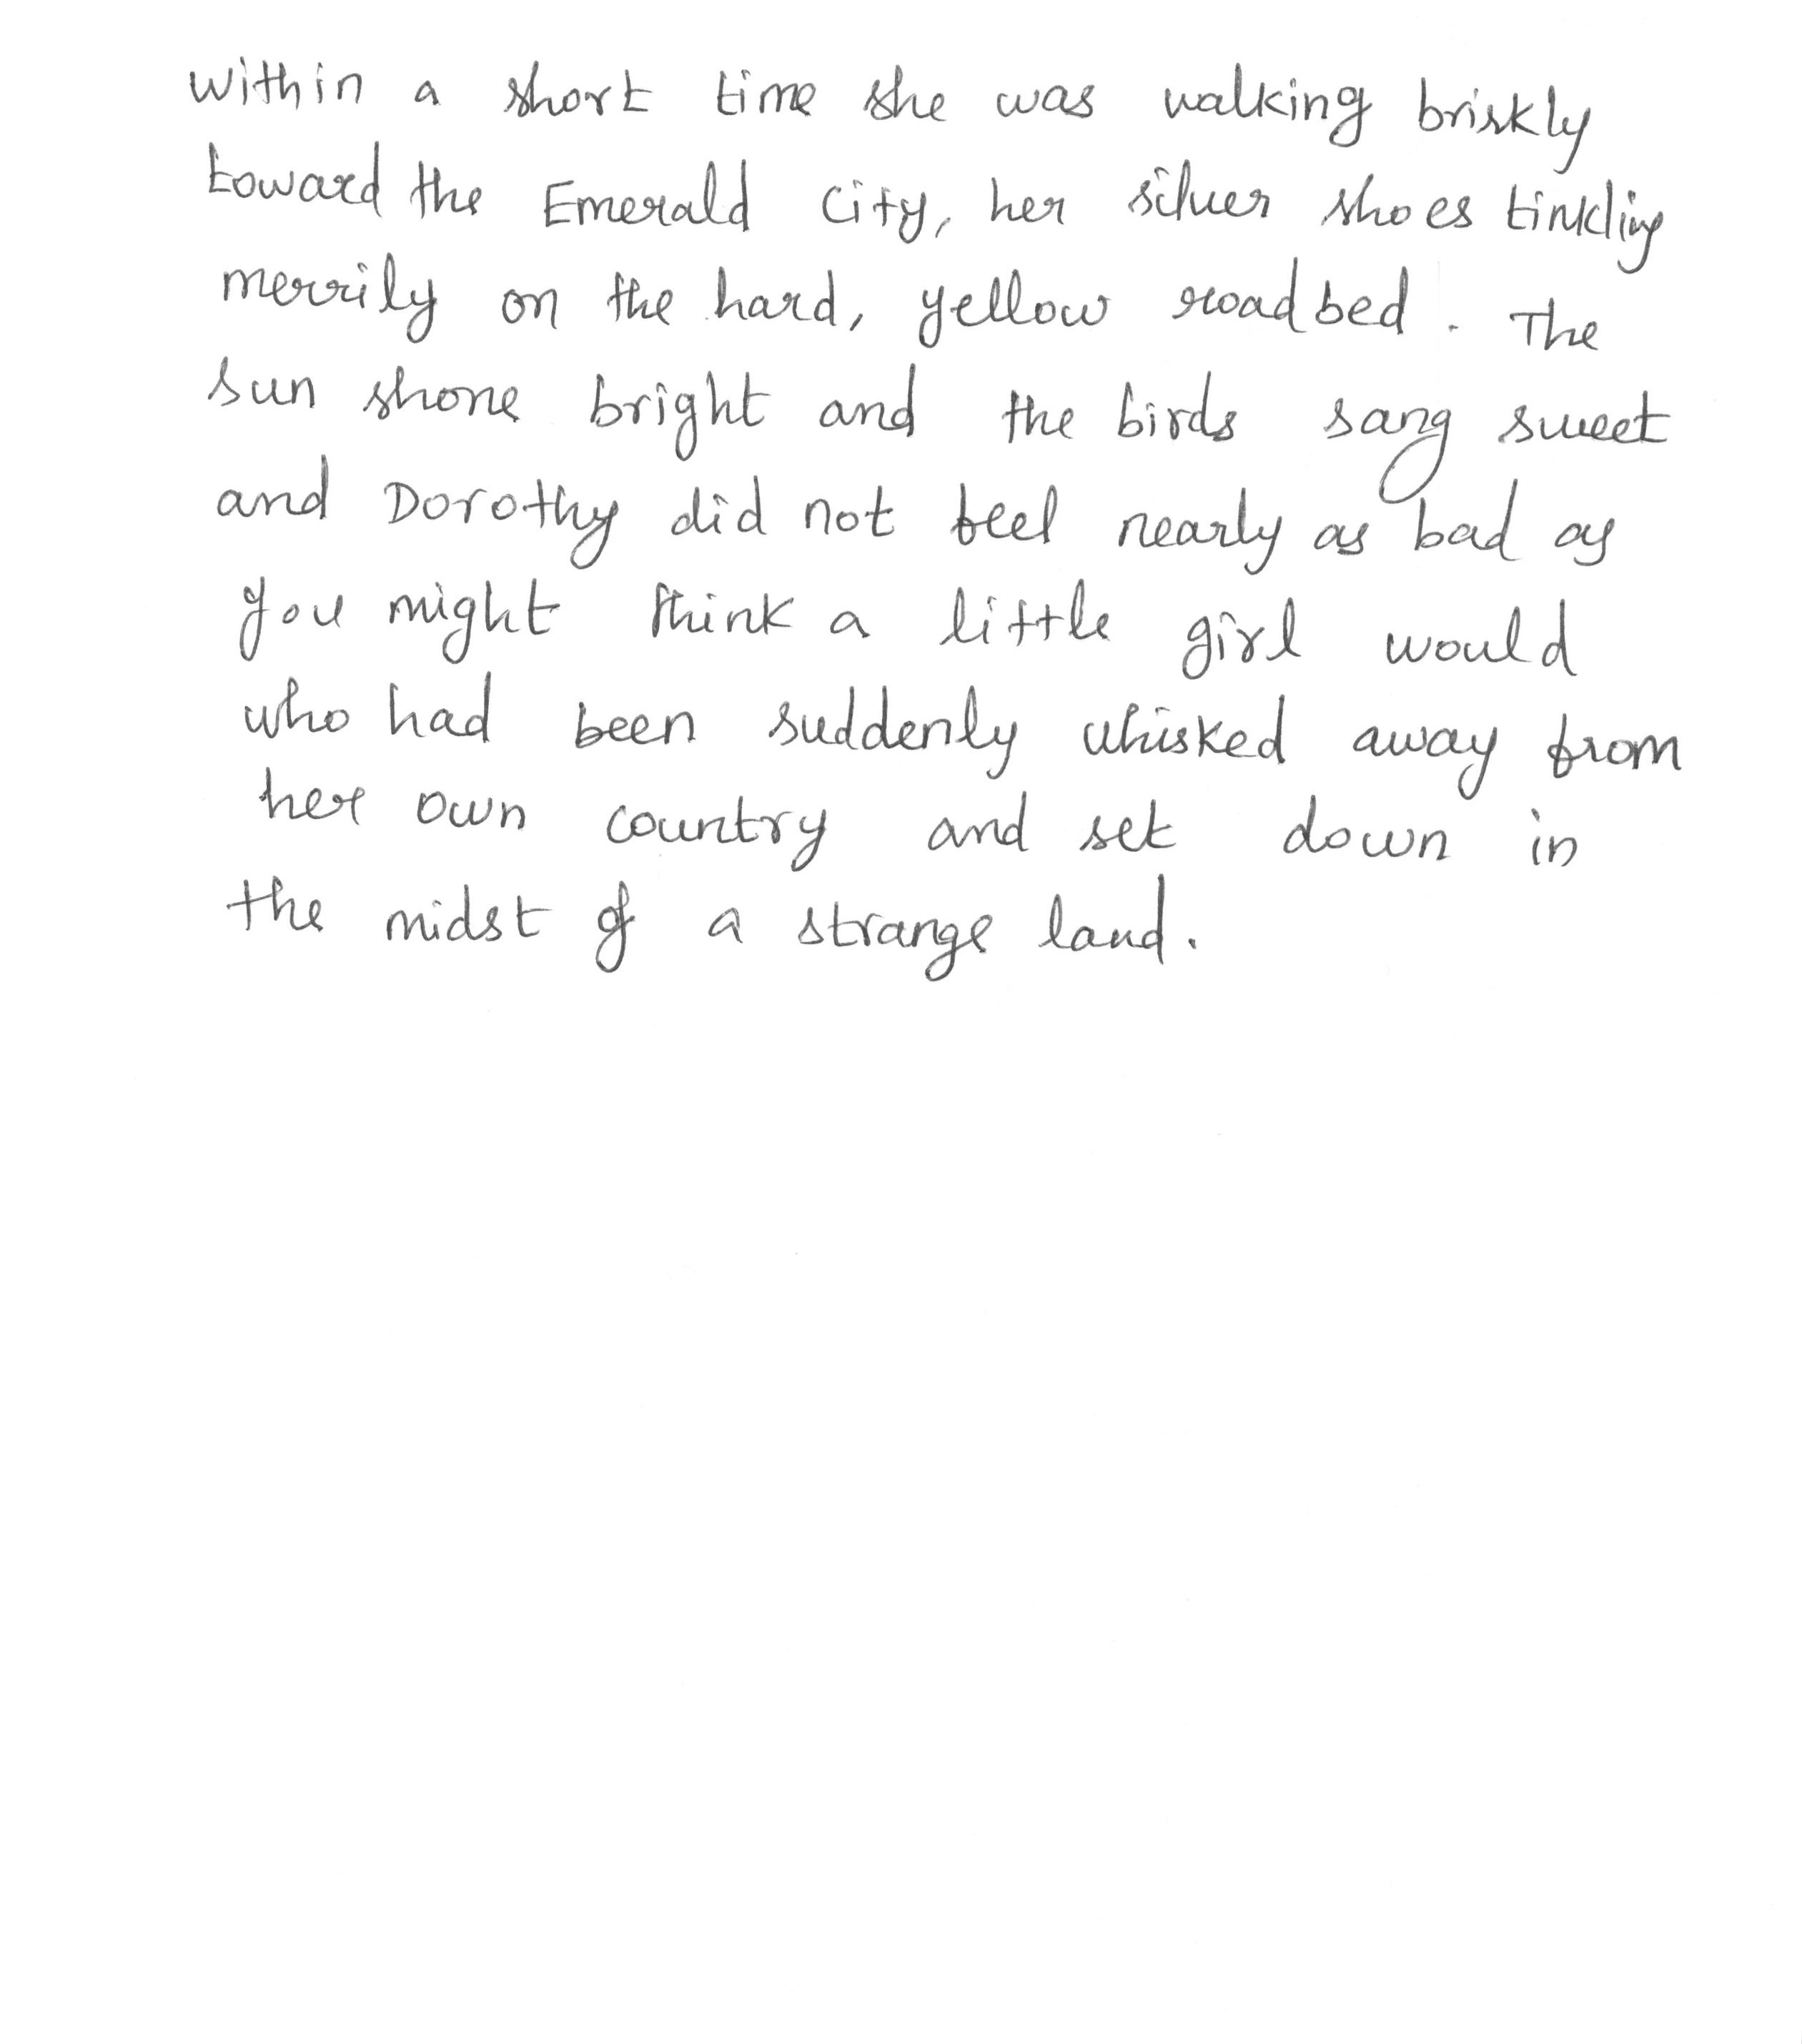 Within a short time she was walking briskly
toward the Emerald City, her silver shoes tinkling
merrily on the hard, yellow roadbed. The
sun shone bright and the birds sang sweet
and Dorothy did not feel nearly as bad as
you might think a little girl would
who had been suddenly whisked away from
her own country and set down in
the midst of a strange land.